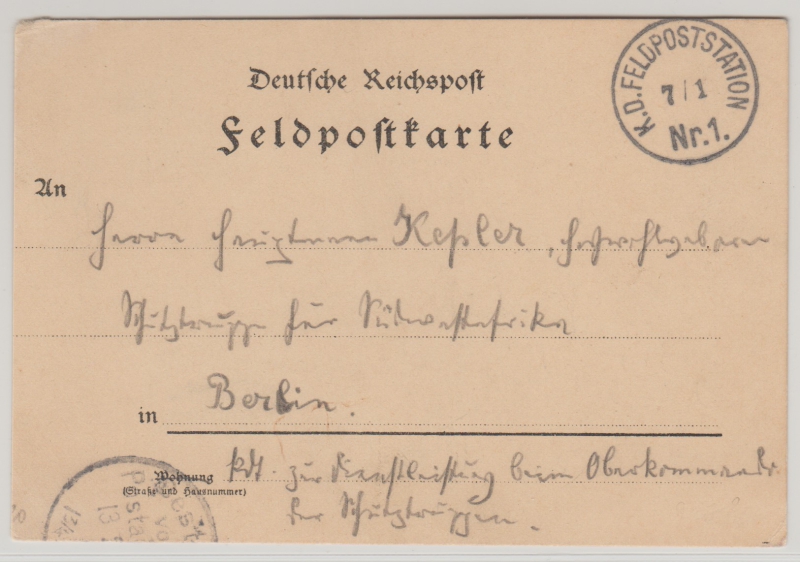 Deutsche Reichspost
Feldpostkarte
K.D.FELDPOSTSTATION
7/1
Nr.1.
An
Herrn Hauptmann Keßler, Hochwohlgeboren
Schutztruppe für Südwestafrika
in Berlin.
Wohnung
(Straße und Hausnummer)
kdt. zur Dienstleistung beim Oberkommando
der Schutztruppen.